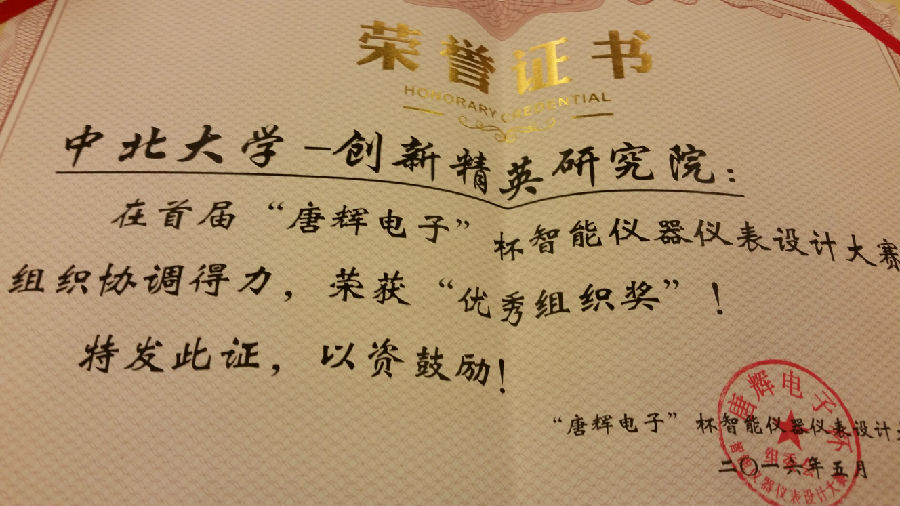 荣誉证书
HONORARY CREDENTIAL
中北大学-创新精英研究院：
在首届“唐辉电子”杯智能仪器仪表设计大赛
组织协调得力，荣获“优秀组织奖”！
特发此证，以资鼓励！
“唐辉电子”杯智能仪器仪表设计
二〇一六年五月
唐辉电子杯
智能仪器仪表设计大赛
组委会